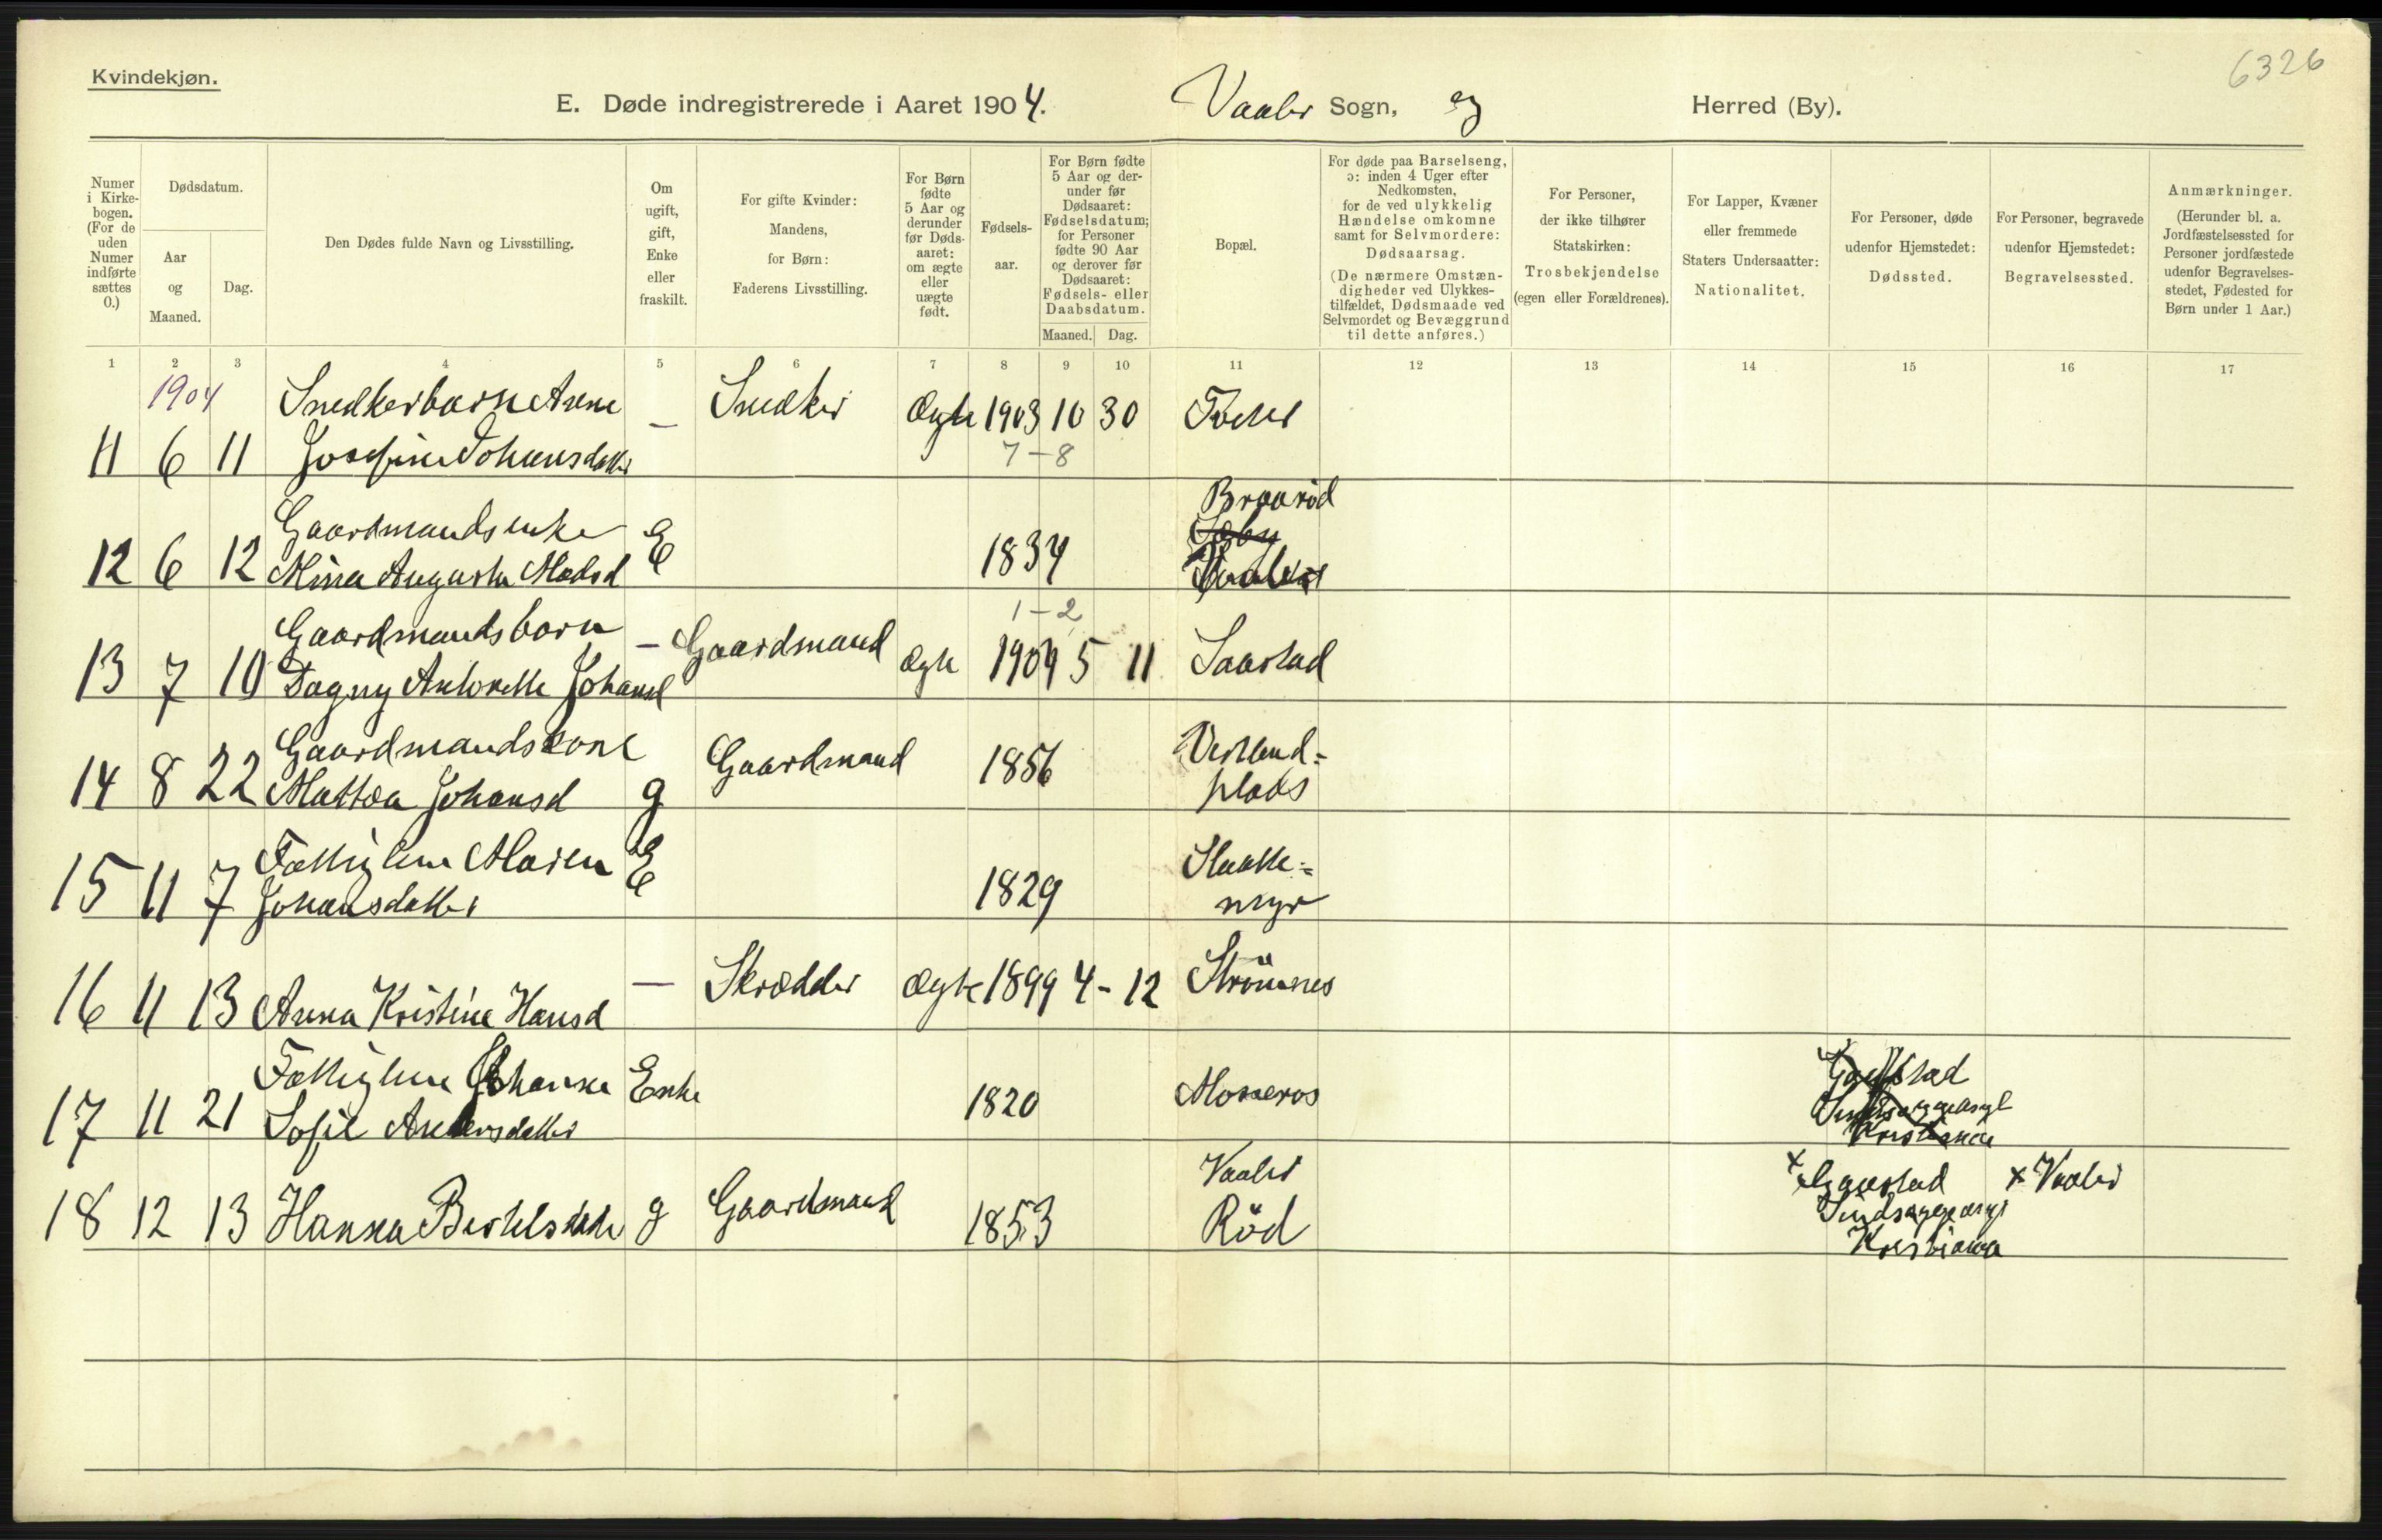 6326
Kvindekjøn.
E. Døde indregistrerede i Aaret 1904. Vaaler Sogn, og Herred (By).
Numer
i Kirke-
bogen.
(For de
uden
Numer
indførte
sættes
0.)
Dødsdatum.
Aar
og
Maaned.
Dag.
Den Dødes fulde Navn og Livsstilling.
Om
ugift,
gift,
Enke
eller
fraskilt.
For gifte Kvinder:
Mandens,
for Børn:
Faderens Livsstilling.
For Børn
fødte
5 Aar og
derunder
før Døds-
aaret:
om ægte
eller
uægte
født.
Fødsels-
aar.
For Børn fødte
5 Aar og der-
under før
Dødsaaret:
Fødselsdatum;
for Personer
fødte 90 Aar
og derover før
Dødsaaret:
Fødsels- eller
Daabsdatum.
Maaned. Dag.
Bopæl.
For døde paa Barselseng,
ɔ: inden 4 Uger efter
Nedkomsten,
for de ved ulykkelig
Hændelse omkomne
samt for Selvmordere:
Dødsaarsag.
(De nærmere Omstæn-
digheder ved Ulykkes-
tilfældet, Dødsmaade ved
Selvmordet og Bevæggrund
til dette anføres.)
For Personer,
der ikke tilhører
Statskirken:
Trosbekjendelse
(egen eller Forældrenes).
For Lapper, Kvæner
eller fremmede
Staters Undersaatter:
Nationalitet.
For Personer, døde
udenfor Hjemstedet:
Dødssted.
For Personer, begravede
udenfor Hjemstedet:
Begravelsessted.
Anmærkninger.
(Herunder bl. a.
Jordfæstelsessted for
Personer jordfæstede
udenfor Begravelses-
stedet, Fødested for
Børn under 1 Aar.)
1 2 3 4 5 6 7 8 9 10 11 12 13 14 15 16 17
1904 Snedkerbarn Anna — Snedker Ægte 1903 10 30
11 6 11 Josefine Johansdatter 7-8
Braarød
Gaardmandsenke E 1834
12 6 12 Mina Augusta Madsd
1-2
Gaardmandsbarn — Gaardmand Ægte 1904 5 11 Saastad
13 7 10 Dagny Antonette Johansd
Gaardmandskone Gaardmand 1856 Vestland-
14 8 22 Mattea Johansd g plads
Fattiglem Maren E 1829
15 11 7 Johansdatter myr
— Skrædder Ægte 1899 4-12 Strömnes
16 11 13 Anna Kristine Hansd
Fattiglem Johanne Enke 1820 Mosseros Gaustad
Sindsygeasyl
17 11 21 Sofie Andersdatter Kristiania
Vaaler x Gaustad x Vaaler
18 12 13 Hanna Bertelsdatter g Gaardmand 1853 Röd Sindsygeasyl
Kristiania